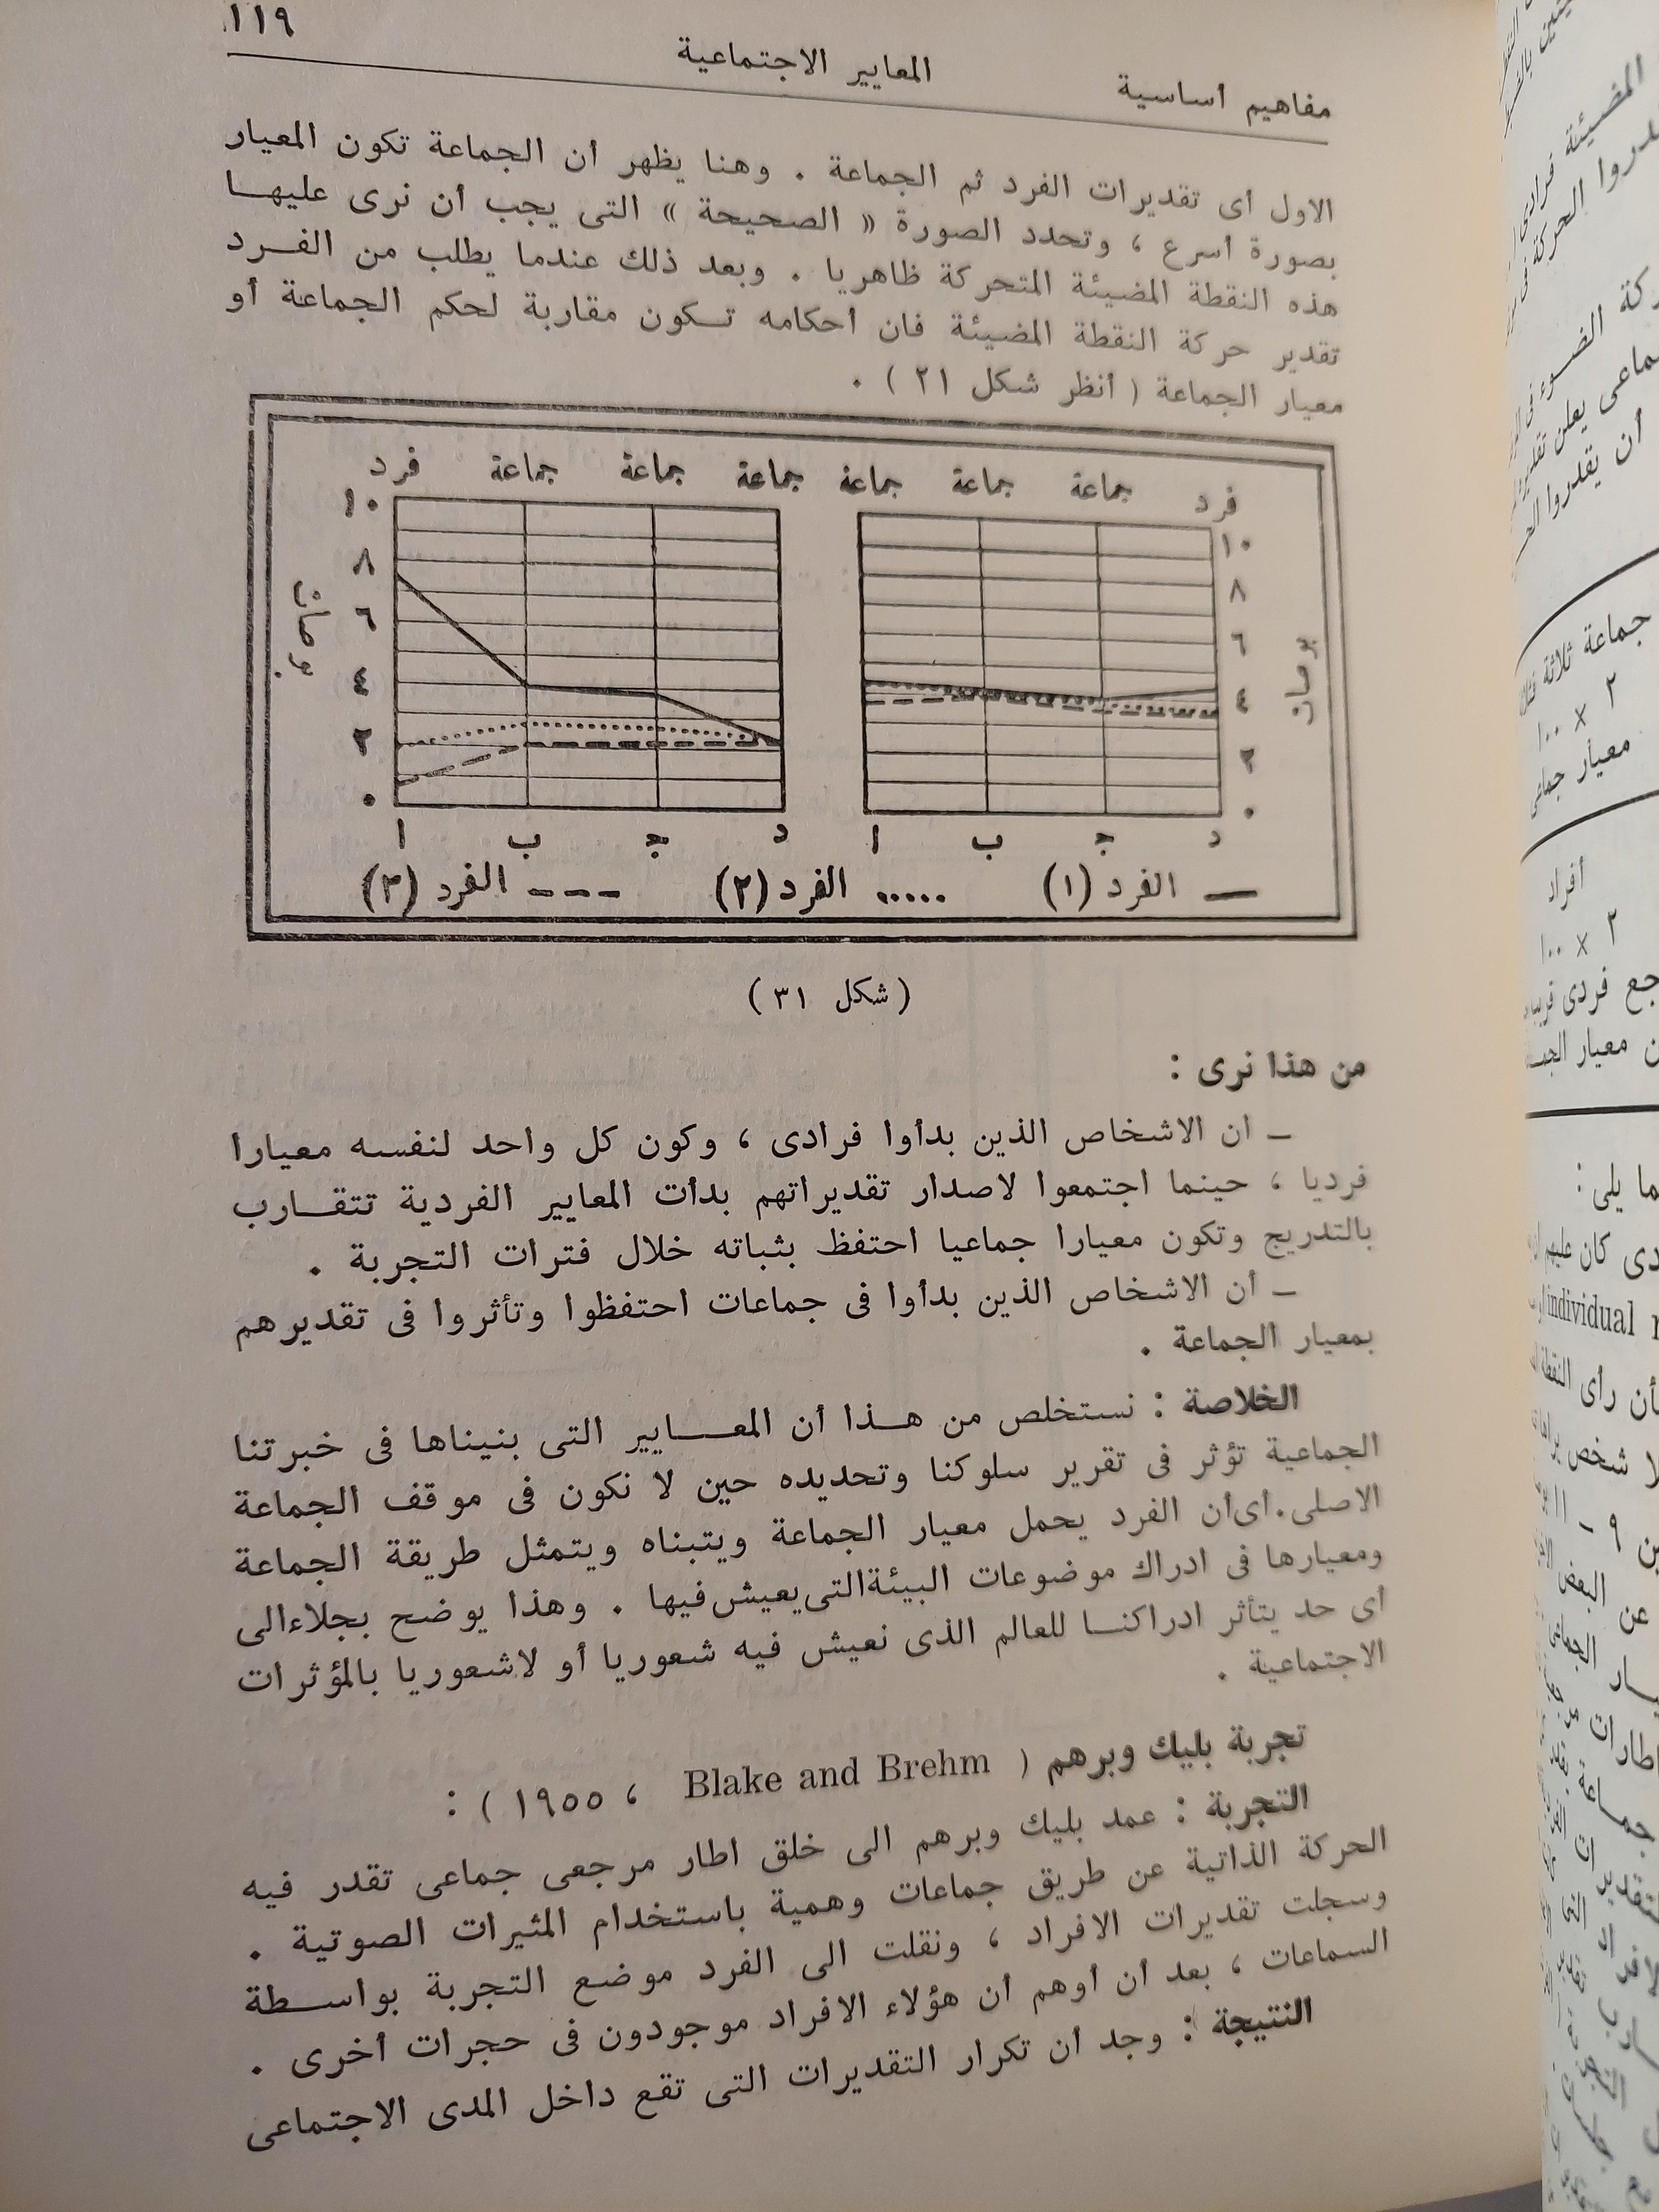 مفاهيم أساسية المعايير الاجتماعية ١١٩
الاول أى تقديرات الفرد ثم الجماعة . وهنا يظهر أن الجماعة تكون المعيار
بصورة أسرع ، وتحدد الصورة « الصحيحة » التى يجب أن نرى عليهــا
هذه النقطة المضيئة المتحركة ظاهريا . وبعد ذلك عندما يطلب من الفــرد
تقدير حركة النقطة المضيئة فان أحكامه تــكون مقاربة لحكم الجماعة أو
معيار الجماعة ( أنظر شكل ٢١ ) .
فرد جماعة جماعة جماعة جماعة جماعة جماعة فرد
١٠ ١٠
٨ ٨
٦ ٦
بوصات بوصات
٤ ٤
٢ ٢
٠ ٠
ا ب جـ د ا ب جـ د
— الفرد (١) ..... الفرد (٢) --- الفرد (٣)
( شكل ٣١ )
من هذا نرى :
ــ ان الاشخاص الذين بدأوا فرادى ، وكون كل واحد لنفسه معيارا
فرديا ، حينما اجتمعوا لاصدار تقديراتهم بدأت المعايير الفردية تتقــارب
بالتدريج وتكون معيارا جماعيا احتفظ بثباته خلال فترات التجربة .
ــ أن الاشخاص الذين بدأوا فى جماعات احتفظوا وتأثروا فى تقديرهم
بمعيار الجماعة .
الخلاصة : نستخلص من هــذا أن المعــايير التى بنيناها فى خبرتنا
الجماعية تؤثر فى تقرير سلوكنا وتحديده حين لا نكون فى موقف الجماعة
الاصلى . أى أن الفرد يحمل معيار الجماعة ويتبناه ويتمثل طريقة الجماعة
ومعيارها فى ادراك موضوعات البيئة التى يعيش فيها . وهذا يوضح بجلاء الى
أى حد يتأثر ادراكنــا للعالم الذى نعيش فيه شعوريا أو لاشعوريا بالمؤثرات
الاجتماعية .
تجربة بليك وبرهم ( Blake and Brehm ، ١٩٥٥ ) :
التجربة : عمد بليك وبرهم الى خلق اطار مرجعى جماعى تقدر فيه
الحركة الذاتية عن طريق جماعات وهمية باستخدام المثيرات الصوتية .
وسجلت تقديرات الافراد ، ونقلت الى الفرد موضع التجربة بواســطة
السماعات ، بعد أن أوهم أن هؤلاء الافراد موجودون فى حجرات أخرى .
النتيجة : وجد أن تكرار التقديرات التى تقع داخل المدى الاجتماعى
جماعة ثلاثة
٢ × ١٠٠
أفراد
٢ × ١٠٠
individual